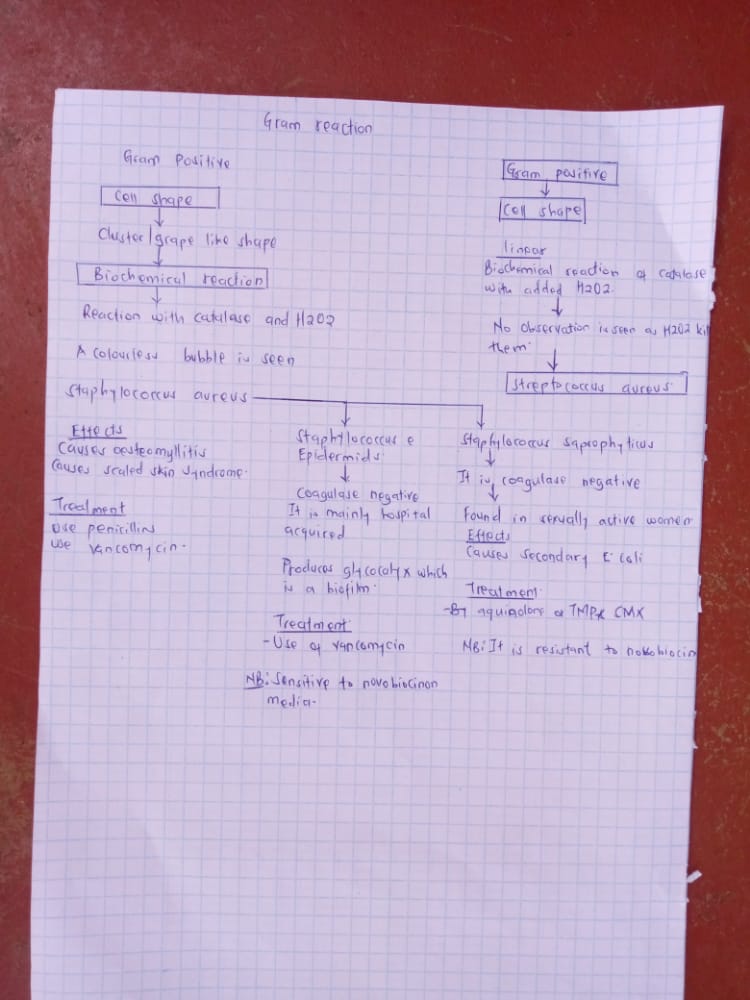 Gram reaction
Gram Positive
Cell shape
Cluster/grape like shape
Biochemical reaction
Reaction with catalase and H2O2
A colourless bubble is seen
Staphylococcus aureus
Effects
Causes oesteomyllitis
Causes scaled skin syndrome.
Treatment
Use penicillins
Use vancomycin.
Staphylococcus e
Epidermids.
Coagulase negative
It is mainly hospital
acquired
Produces glycocalyx which
is a biofilm.
Treatment.
- Use of vancomycin
NB: Sensitive to novobiocinon
media.
Gram positive
Cell shape
linear
Biochemical reaction of catalase
with added H2O2.
No observation is seen as H2O2 kill
them.
Streptococcus aureus.
Staphylococcus saprophyticus
It is coagulase negative
Found in sexually active women
Effects
Causes secondary E. coli
Treatment.
- By aquinolone or TMPX CMX
NB: It is resistant to novobiocin